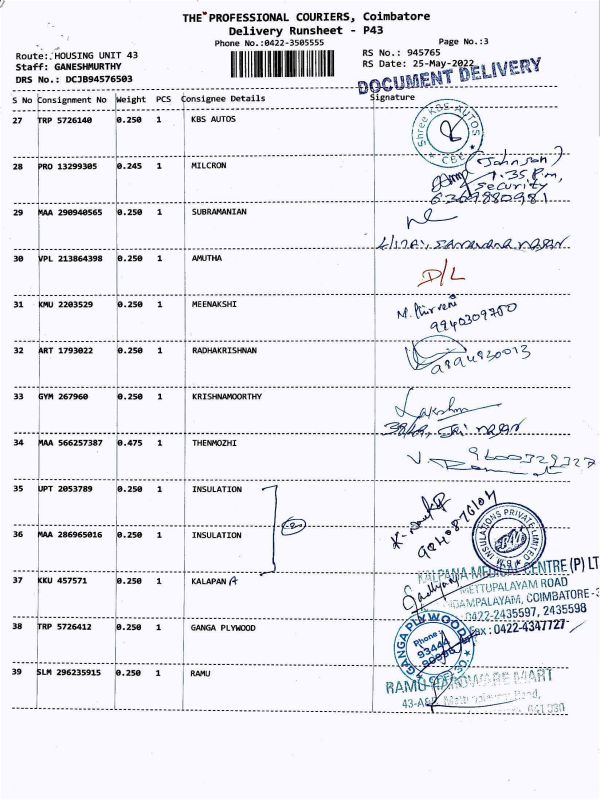 THE PROFESSIONAL COURIERS, Coimbatore
Delivery Runsheet - P43
Phone No.:0422-3505555
Page No.:3
Route: HOUSING UNIT 43
RS No.: 945765
Staff: GANESHMURTHY
RS Date: 25-May-2022
DRS No.: DCJB94576503
DOCUMENT DELIVERY
S No Consignment No Weight PCS Consignee Details Signature
27 TRP 5726140 0.250 1 KBS AUTOS
Shree KBS AUTOS
CBE
28 PRO 13299305 0.245 1 MILCRON
(Johnson)
1.35 P.m,
Security
6369880981
29 MAA 290940565 0.250 1 SUBRAMANIAN
4/17A, Saravana nagar
30 VPL 213864398 0.250 1 AMUTHA
D/L
31 KMU 2203529 0.250 1 MEENAKSHI
9940309750
32 ART 1793022 0.250 1 RADHAKRISHNAN
9894830013
33 GYM 267960 0.250 1 KRISHNAMOORTHY
Lakshm
Jai nagar
34 MAA 566257387 0.475 1 THENMOZHI
9600329327
35 UPT 2053789 0.250 1 INSULATION
36 MAA 286965016 0.250 1 INSULATION
2
INSULATIONS PRIVATE LIMITED
37 KKU 457571 0.250 1 KALAPAN A
KALPANA MEDICAL CENTRE (P) LT
METTUPALAYAM ROAD
COIMBATORE -
0422-2435597, 2435598
Fax : 0422-4347727
38 TRP 5726412 0.250 1 GANGA PLYWOOD
GANGA PLYWOOD
Phone :
93444
39 SLM 296235915 0.250 1 RAMU
RAMU HARDWARE MART
43-A
Road,